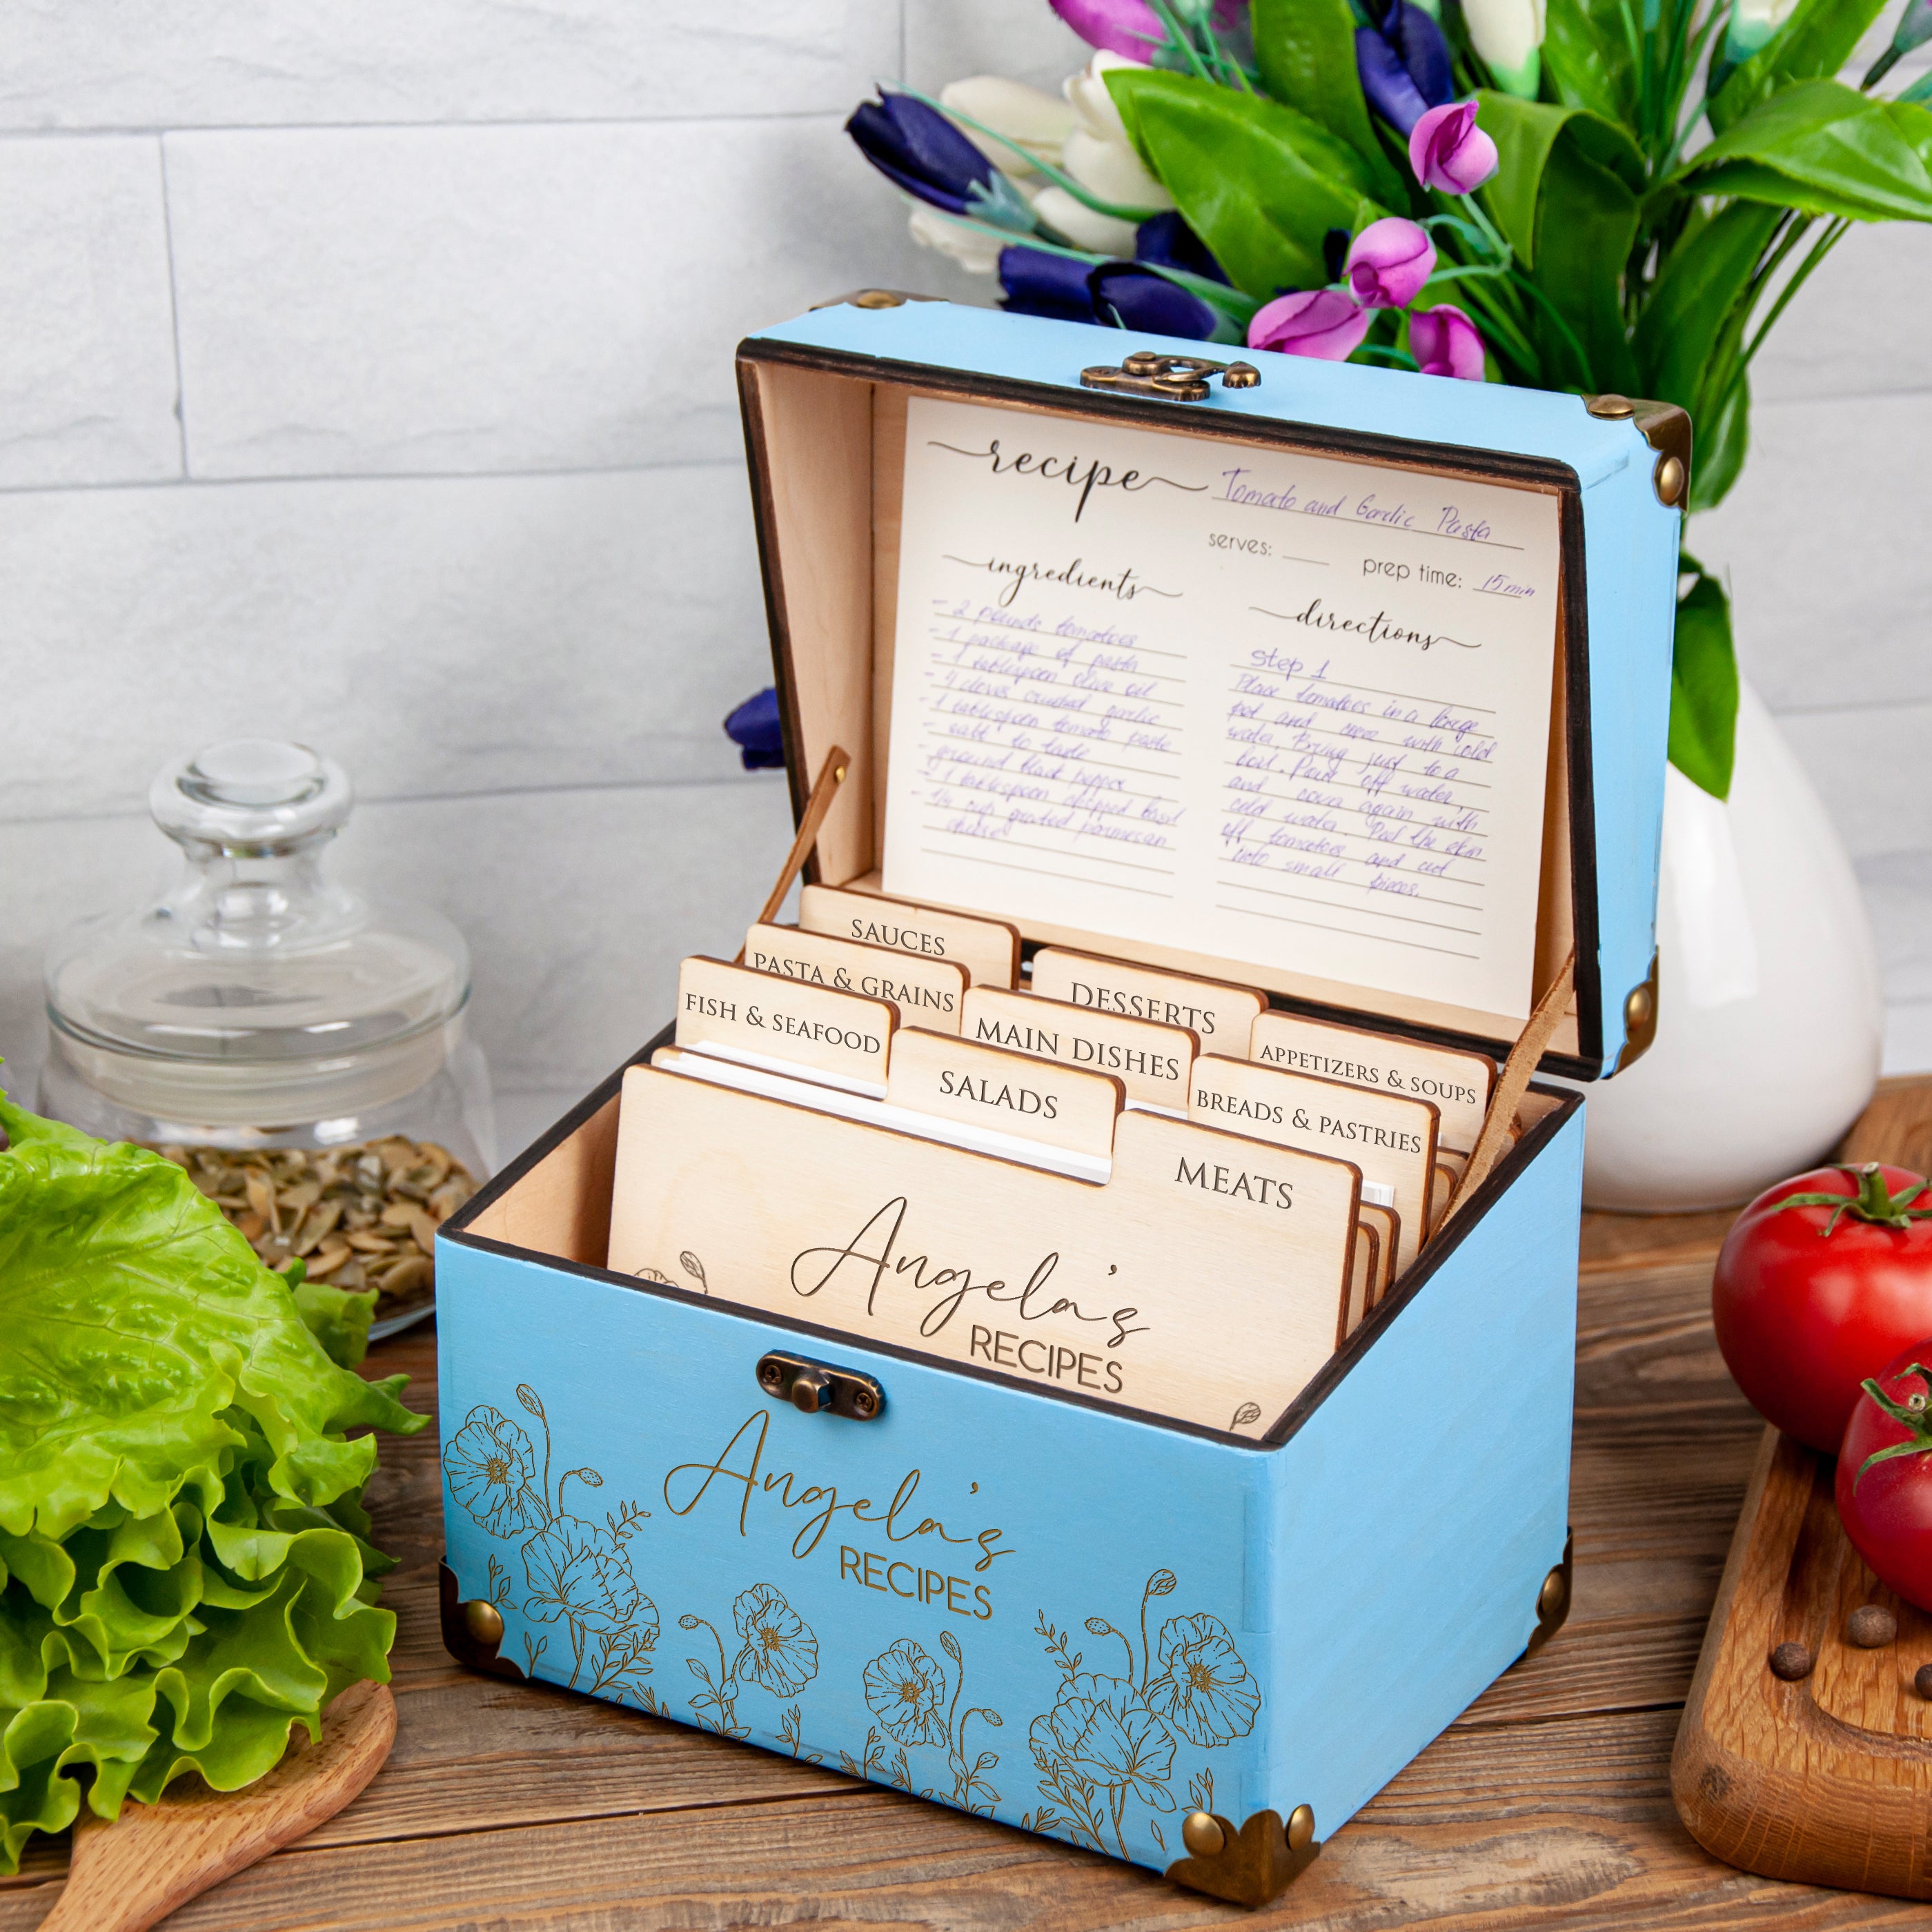 recipe Tomato and Garlic Pasta
serves: prep time: 15 min
ingredients
- 2 pounds tomatoes
- 1 package of pasta
- 1 tablespoon olive oil
- 4 cloves crushed garlic
- 1 tablespoon tomato paste
- salt to taste
- ground black pepper
- 1 tablespoon chopped basil
- 1/4 cup grated parmesan
cheese
directions
Step 1
Place tomatoes in a large
pot and cover with cold
water. Bring just to a
boil. Pour off water,
and cover again with
cold water. Peel the skin
off tomatoes and cut
into small pieces.
SAUCES
PASTA & GRAINS
FISH & SEAFOOD
DESSERTS
MAIN DISHES
SALADS
APPETIZERS & SOUPS
BREADS & PASTRIES
MEATS
Angela's
RECIPES
Angela's
RECIPES